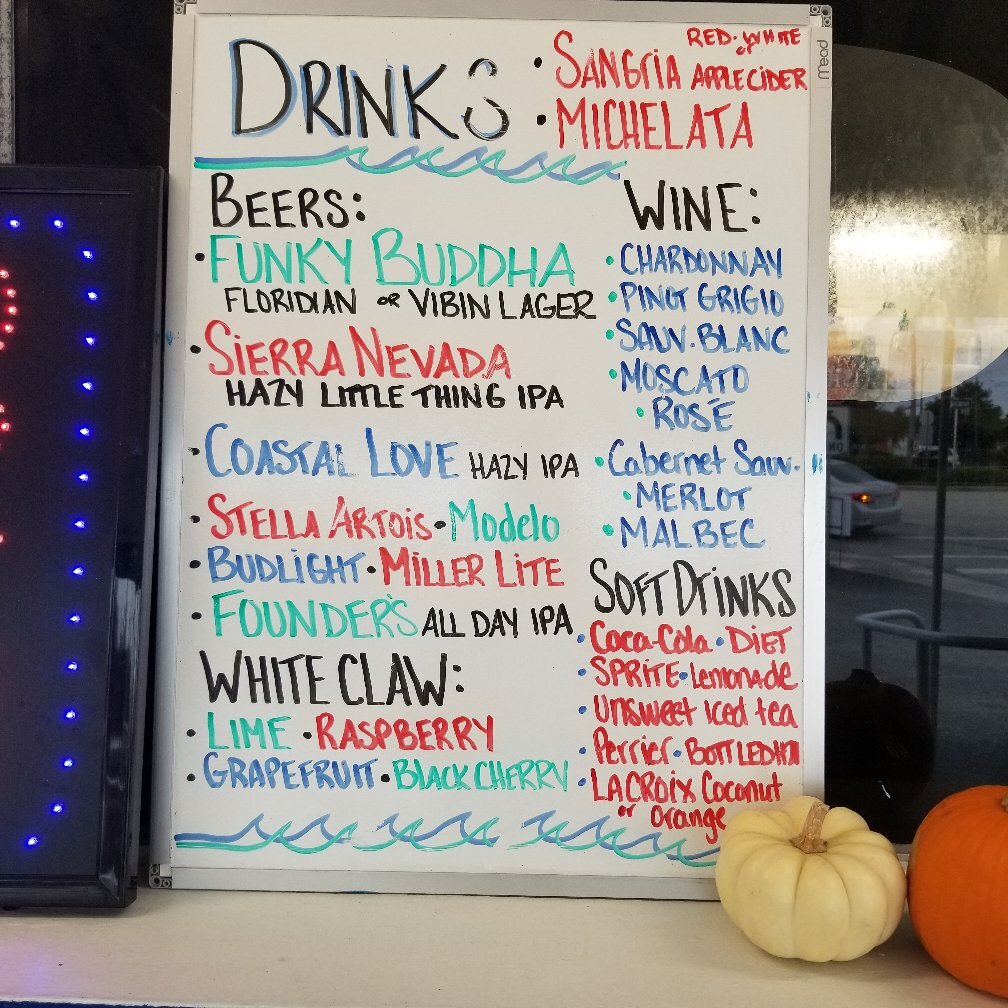 DRINKS
RED or WHITE
• SANGRIA APPLE CIDER
• MICHELATA
BEERS:
• FUNKY BUDDHA
FLORIDIAN or VIBIN LAGER
• SIERRA NEVADA
HAZY LITTLE THING IPA
• COASTAL LOVE HAZY IPA
• STELLA ARTOIS • Modelo
• BUDLIGHT • MILLER LITE
• FOUNDER'S ALL DAY IPA
WHITE CLAW:
• LIME • RASPBERRY
• GRAPEFRUIT • BLACK CHERRY
WINE:
• CHARDONNAY
• PINOT GRIGIO
• SAUV. BLANC
• MOSCATO
• ROSÉ
• Cabernet Sauv.
• MERLOT
• MALBEC
SOFT DRINKS
• Coca-Cola • DIET
• SPRITE • Lemonade
• Unsweet Iced tea
• Perrier • BOTTLED
• LA CROIX Coconut
or Orange
Mead